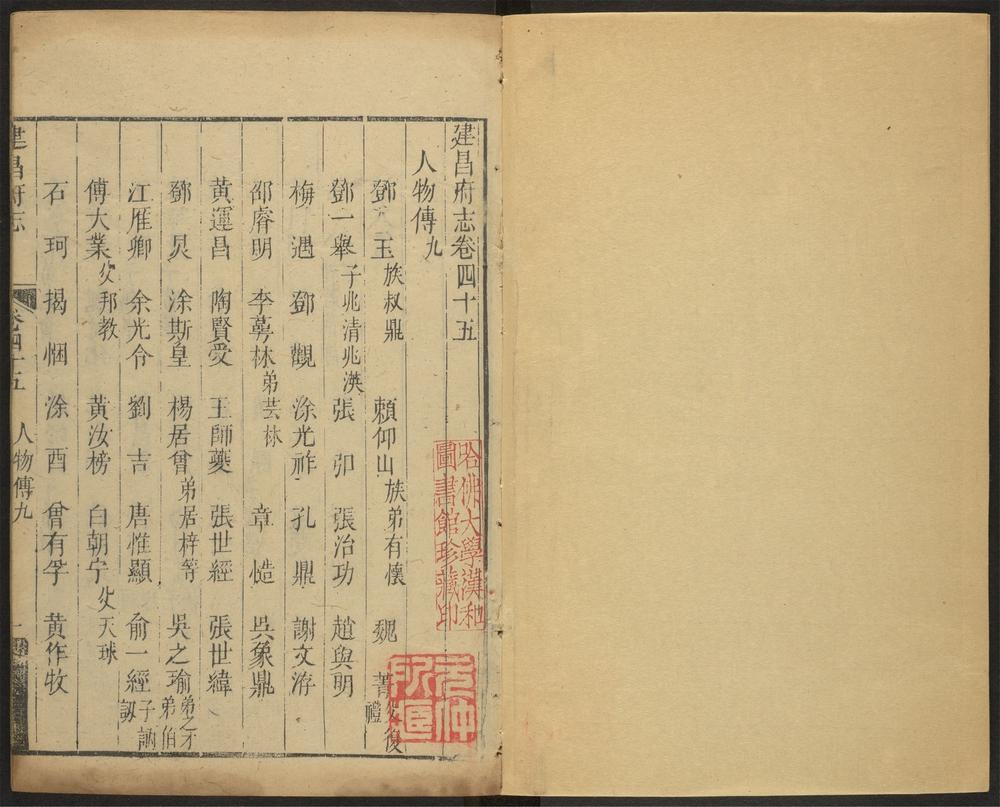 建昌府志卷四十五
人物傳九
鄧玉族叔鼎 賴仰山族弟有懷 魏菁父復禮
鄧一舉子兆清兆漢 張卯 張治功 趙與明
梅遇 鄧觀 涂光祚 孔鼎 謝文洊
邵睿明 李萼林弟芸林 章慥 吳象鼎
黃運昌 陶賢受 王師夔 張世經 張世緯
鄧炅 涂斯皇 楊居曾弟居梓等 吳之瑜弟之才弟伯
江雁卿 余光令 劉吉 唐惟顯 俞一經子訥
傅大業父邦教 黃汝榜 白朝宁父天球
石珂 揭悃 涂酉 曾有孚 黃作牧
建昌府志 卷四十五 人物傳九 一
哈佛大學漢和
圖書館珍藏印